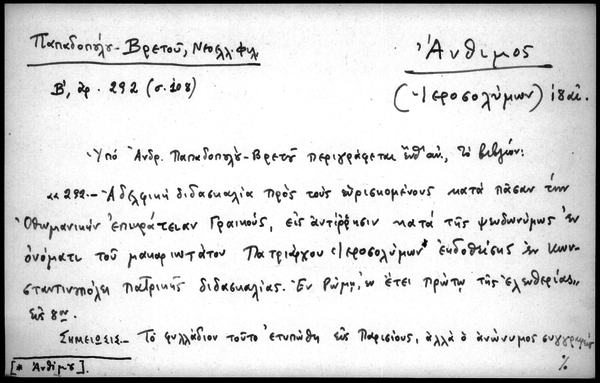 Παπαδοπούλου-Βρετοῦ, Νεοελλ. Φιλ.
Ἄνθιμος
Β', ἀρ. 292 (σ. 108)
(Ἱεροσολύμων) ιθ' αἰ.
Ὑπὸ Ἀνδρ. Παπαδοπούλου-Βρετοῦ περιγράφεται ἔνθ' ἀν., τὸ βιβλίον:
«292.- Ἀδελφικὴ διδασκαλία πρὸς τοὺς εὑρισκομένους κατὰ πᾶσαν τὴν
Ὀθωμανικὴν ἐπικράτειαν Γραικούς, εἰς ἀντίῤῥησιν κατὰ τῆς ψευδωνύμως ἐν
ὀνόματι τοῦ μακαριωτάτου Πατριάρχου Ἱεροσολύμων* ἐκδοθείσης ἐν Κων-
σταντινουπόλει πατρικῆς διδασκαλίας. Ἐν Ῥώμῃ, ἐν ἔτει πρώτῳ τῆς ἐλευθερίας»
εἰς 8ον.
Σημείωσις.- Τὸ φυλλάδιον τοῦτο ἐτυπώθη εἰς Παρισίους, ἀλλὰ ὁ ἀνώνυμος συγγραφεὺς
[* Ἀνθίμου].
%